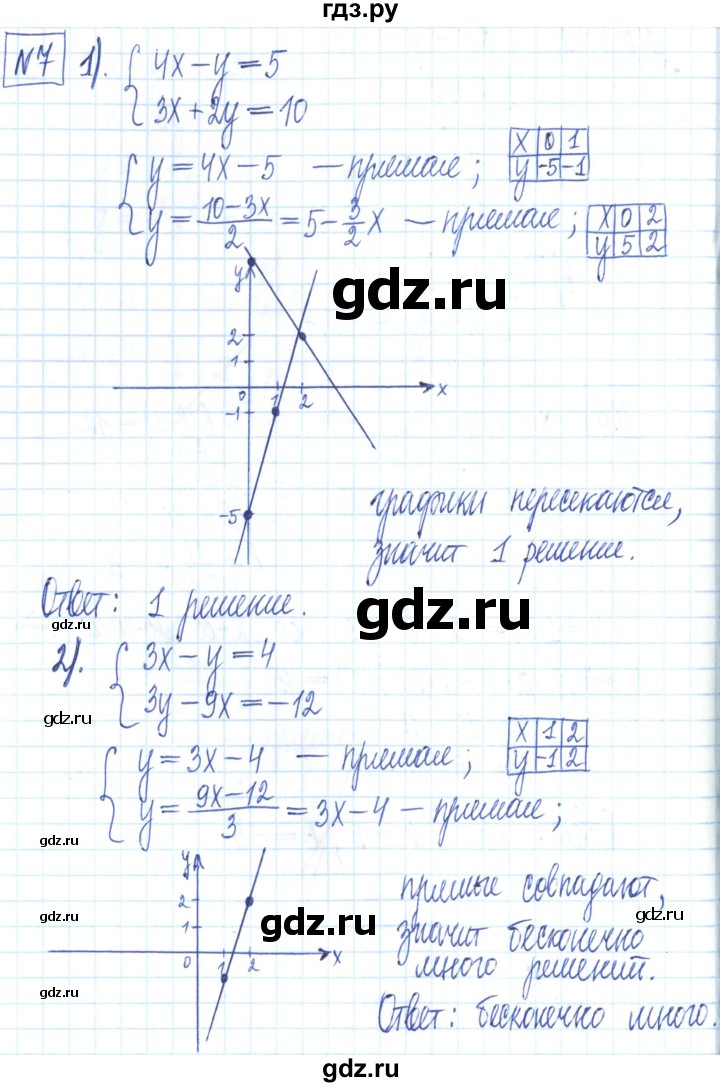 гдз.ру
№7 1). { 4x - y = 5
3x + 2y = 10
{ y = 4x - 5 — прямая; x 0 1
y -5 -1
y = (10 - 3x)/2 = 5 - 3/2 x — прямая; x 0 2
y 5 2
y
gdz.ru
2
1
0 1 2 x
-1
-5
графики пересекаются,
значит 1 решение.
Ответ: 1 решение.
gdz.ru
gdz.ru
2). { 3x - y = 4
3y - 9x = -12
gdz.ru
gdz.ru
{ y = 3x - 4 — прямая; x 1 2
y -1 2
y = (9x - 12)/3 = 3x - 4 — прямая;
gdz.ru
y
2
1
0 1 2 x
gdz.ru
gdz.ru
прямые совпадают,
gdz.ru
значит бесконечно
много решений.
gdz.ru
Ответ: бесконечно много.
gdz.ru